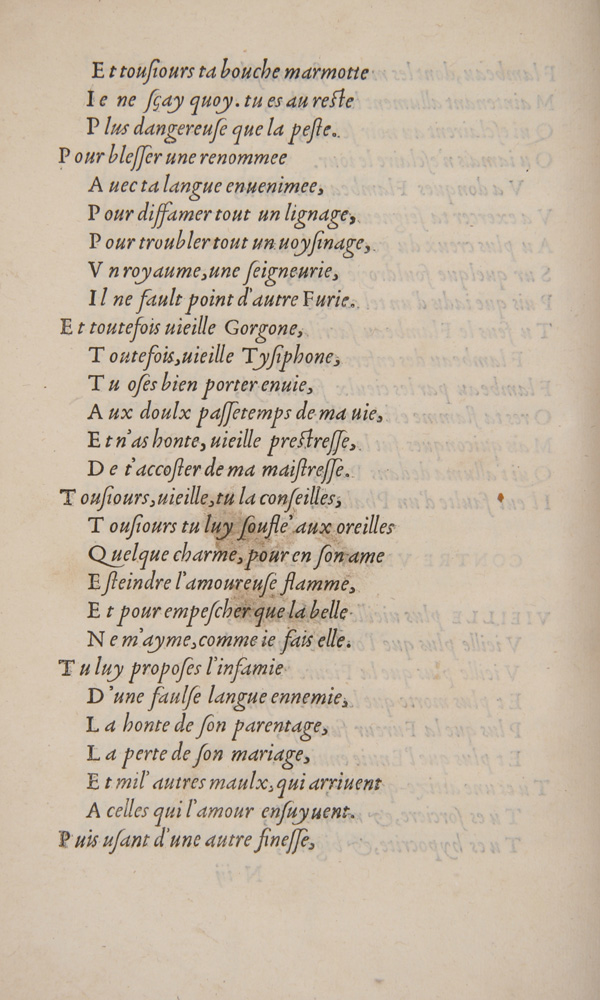 Et touſiours ta bouche marmotte
Ie ne ſçay quoy. tu es au reſte
Plus dangereuſe que la peſte.
Pour bleſſer une renommee
Auec ta langue enuenimee,
Pour diffamer tout un lignage,
Pour troubler tout un uoyſinage,
Vn royaume, une ſeigneurie,
Il ne fault point d'autre Furie.
Et toutefois uieille Gorgone,
Toutefois, uieille Tyſiphone,
Tu oſes bien porter enuie,
Aux doulx paſſetemps de ma uie,
Et n'as honte, uieille preſtreſſe,
De t'accoſter de ma maiſtreſſe.
Touſiours, uieille, tu la conſeilles,
Touſiours tu luy ſoufle' aux oreilles
Quelque charme, pour en ſon ame
Eſteindre l'amoureuſe flamme,
Et pour empeſcher que la belle
Ne m'ayme, comme ie fais elle.
Tu luy propoſes l'infamie
D'une faulſe langue ennemie,
La honte de ſon parentage,
La perte de ſon mariage,
Et mil' autres maulx, qui arriuent
A celles qui l'amour enſuyuent.
Puis uſant d'une autre fineſſe,